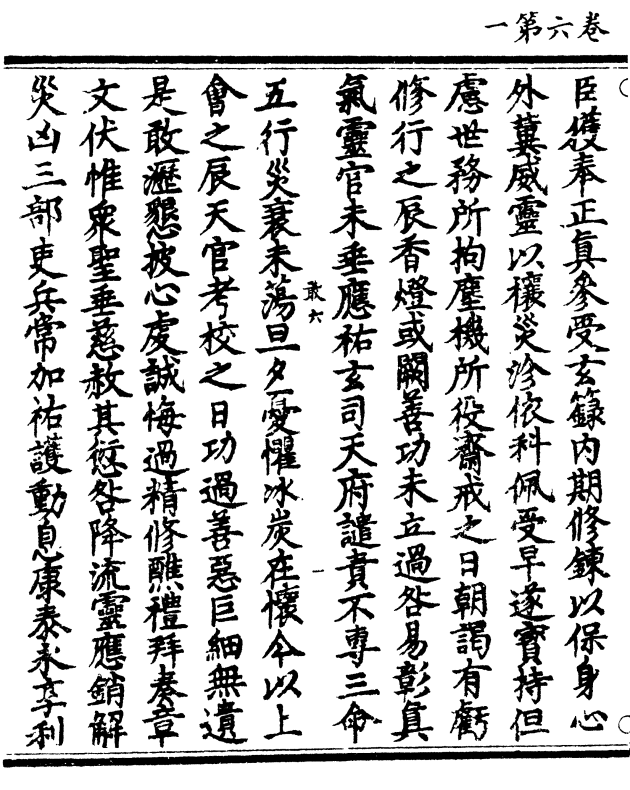 卷六第一
臣獲奉正真參受玄籙內期修鍊以保身心
外冀威靈以穰災沴依科佩受早遂寶持但
慮世務所拘塵機所役齋戒之日朝謁有虧
修行之辰香燈或闕善功未立過咎易彰真
氣靈官未垂應祐玄司天府譴責不專三命
敢六
一
五行災衰未蕩旦夕憂懼冰炭在懷今以上
會之辰天官考校之日功過善惡巨細無遺
是敢瀝懇披心虔誠悔過精修醮禮拜奏章
文伏惟衆聖垂慈赦其愆咎降流靈應銷解
災凶三部吏兵常加祐護動息康泰永享利